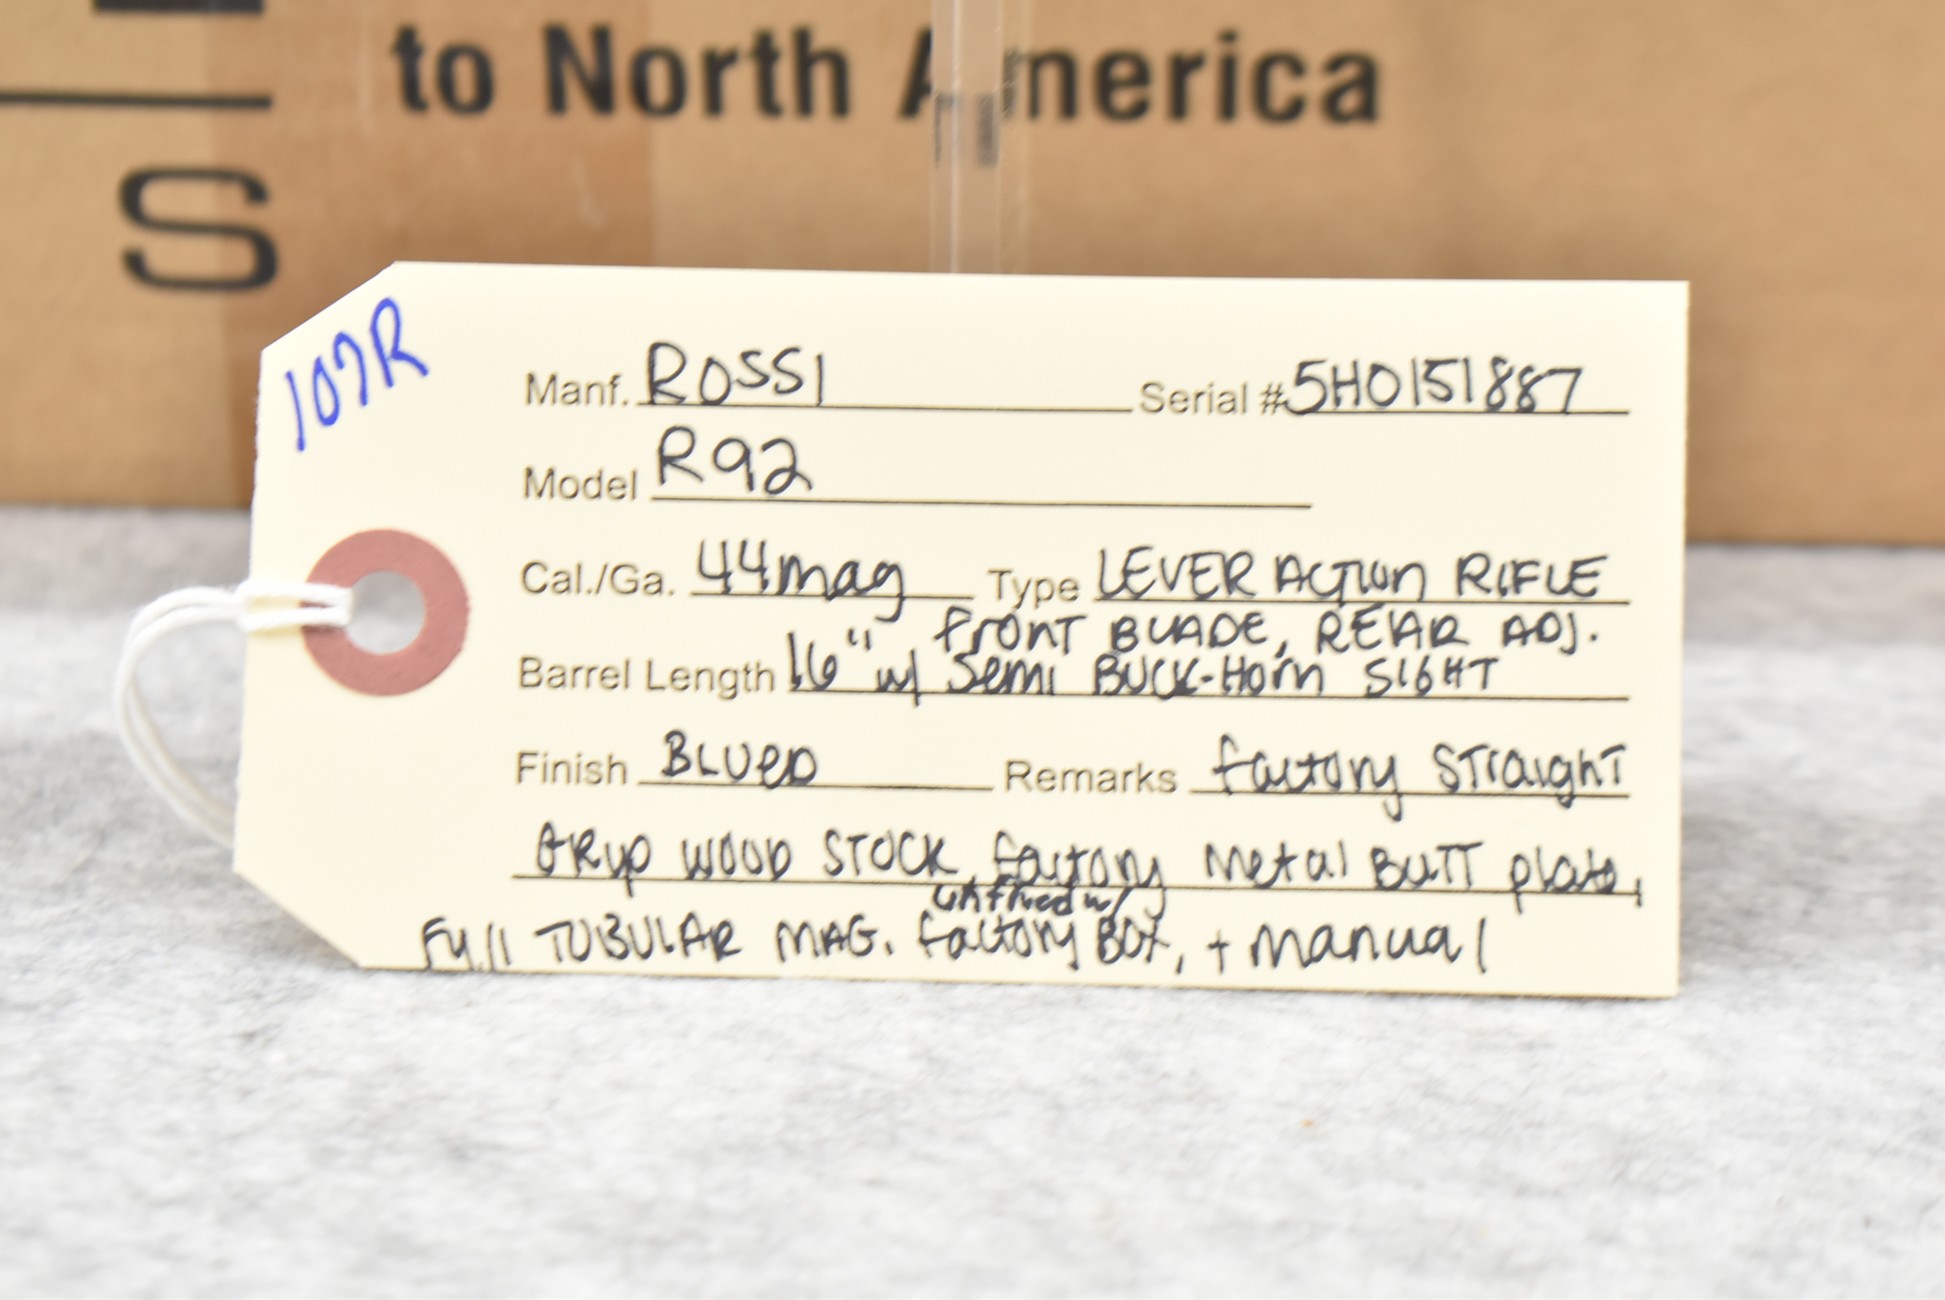 to North America
S
107R
Manf. ROSSI Serial # 5H0151887
Model R92
Cal./Ga. 44mag Type LEVER ACTION RIFLE
FRONT BLADE, REAR ADJ.
Barrel Length 16" w/ Semi BUCK-Horn SIGHT
Finish BLUED Remarks factory STraighT
GRip WOOD STOCK, factory Metal BUTT plate,
unfired w/
Full TUBULAR MAG. factory BOX, + manual